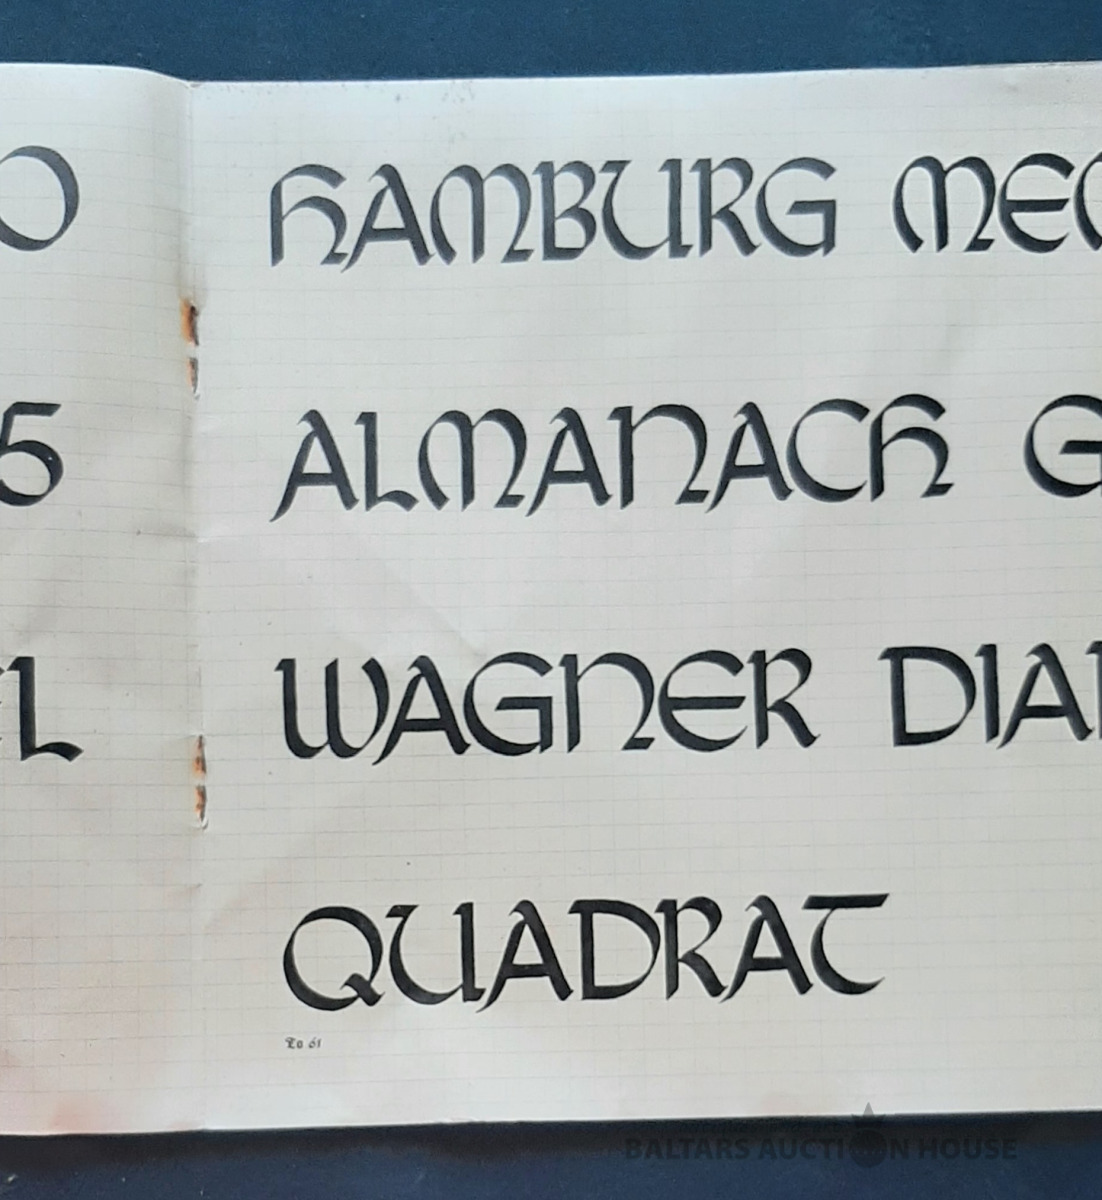 O
HAMBURG MEC
5
ALMANACH G
EL
WAGNER DIAN
QUADRAT
61
BALTARS AUCTION HOUSE